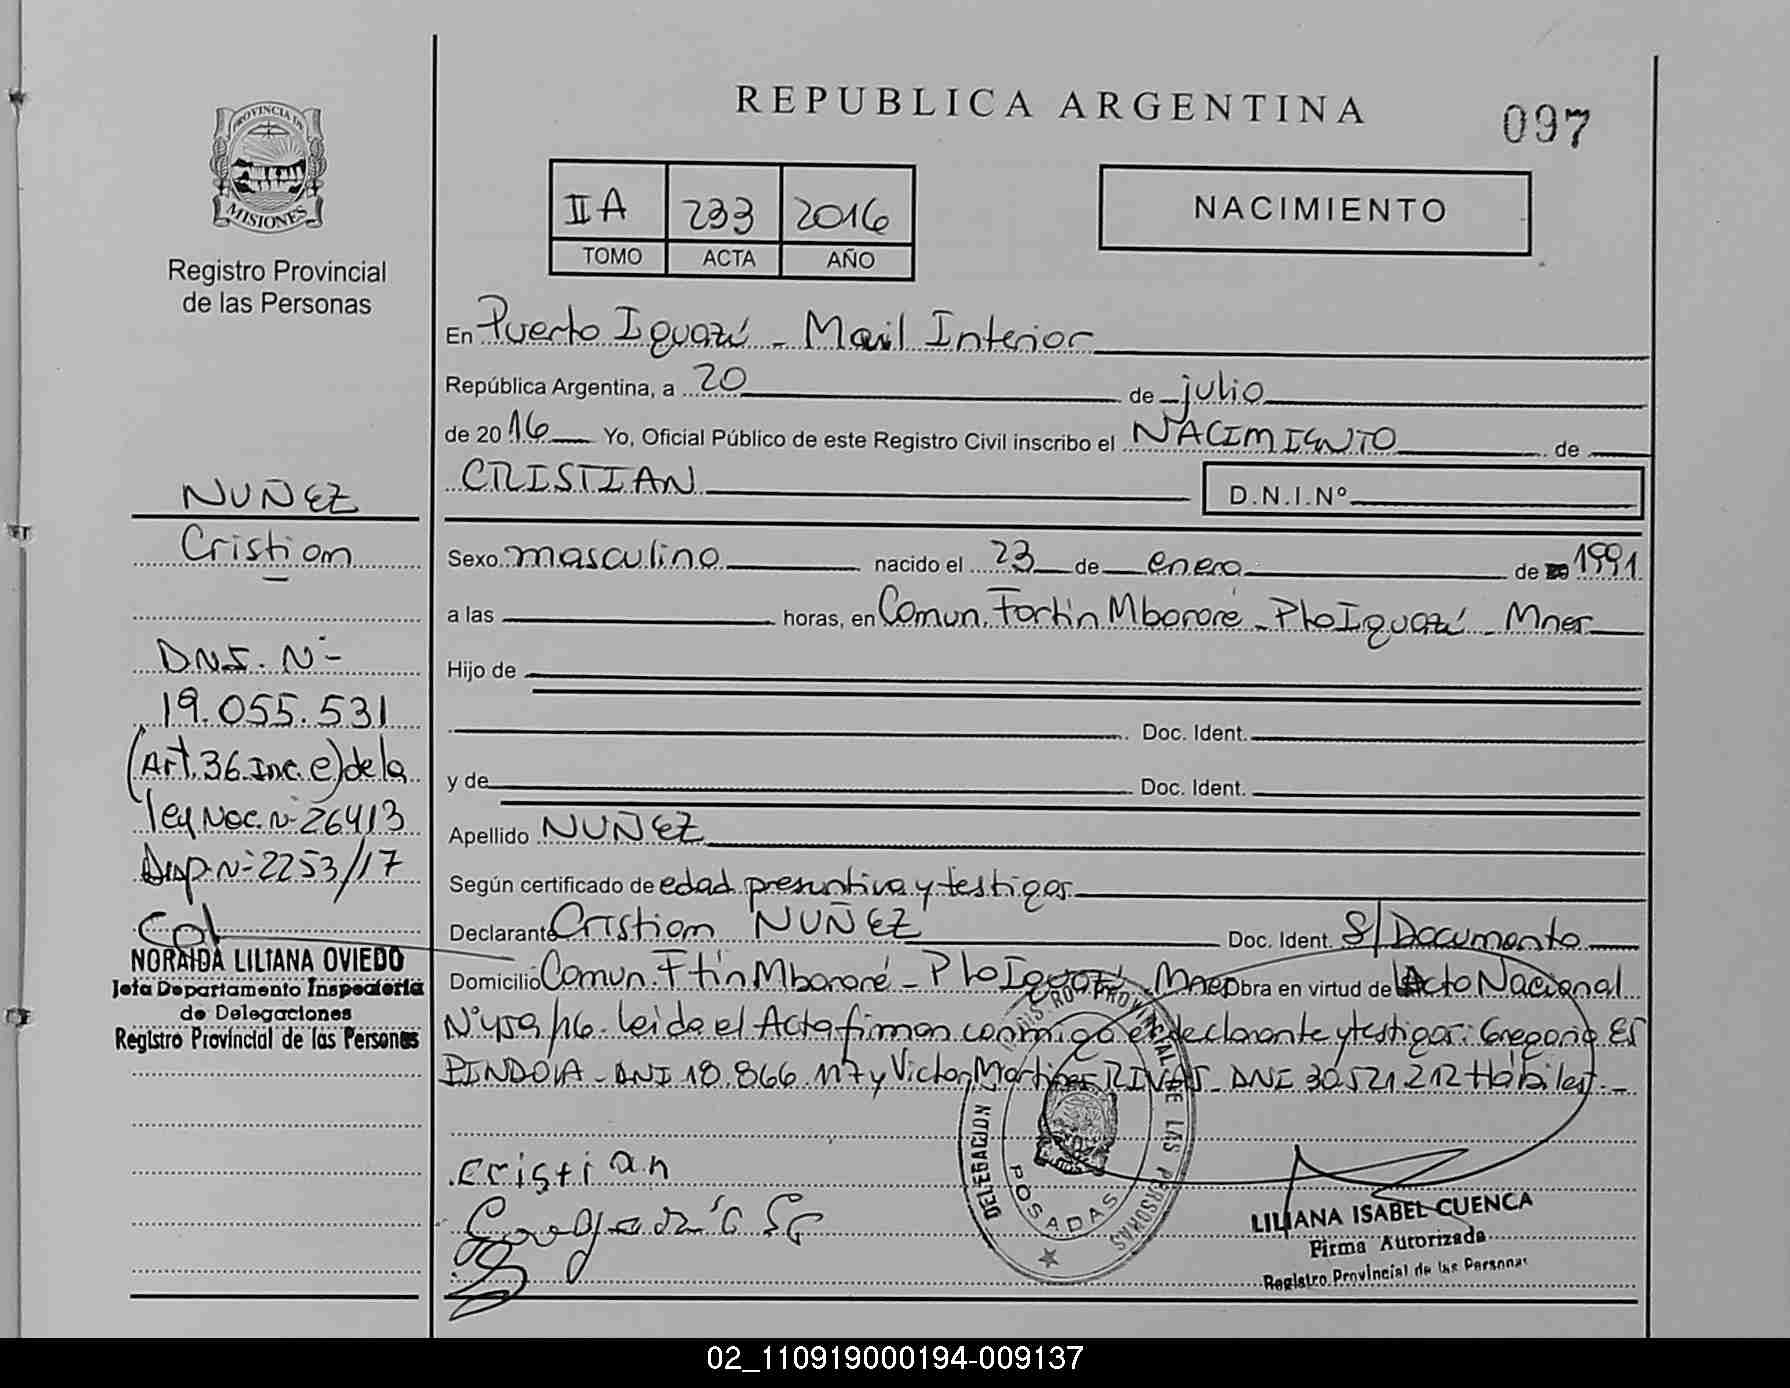 REPUBLICA ARGENTINA
097
PROVINCIA DE
MISIONES
Registro Provincial
de las Personas
II A 233 2016
TOMO ACTA AÑO
NACIMIENTO
En Puerto Iguazú - Mail Interior
República Argentina, a 20 de julio
de 2016 Yo, Oficial Público de este Registro Civil inscribo el NACIMIENTO de
CRISTIAN D.N.I.Nº
Sexo masculino nacido el 23 de enero de 1991
a las horas, en Comun. Fortín Mbororé - Pto Iguazú - Mnes
Hijo de
Doc. Ident.
y de Doc. Ident.
Apellido NUÑEZ
Según certificado de edad presuntiva y testigos
Declarante Cristian NUÑEZ Doc. Ident. S/Documento
Domicilio Comun. Ftín Mbororé - Pto Iguazú - Mnes Obra en virtud de Acto Nacional
Nº 459/16. Leida el Acta firman conmigo el declarante y testigos: Gregorio ES
PINDOLA - DNI 18.866.117 y Victor Martinez RIVAS - DNI 30.521.212 Hábiles.-
cristian
LILIANA ISABEL CUENCA
Firma Autorizada
Registro Provincial de las Personas
DELEGACION POSADAS
REGISTRO PROVINCIAL DE LAS PERSONAS
NUÑEZ
Cristian
DNI. Nº
19.055.531
(Art. 36 Inc. e) de la
ley Nac. Nº 26413
Disp. Nº 2253/17
NORAIDA LILIANA OVIEDO
Jefa Departamento Inspectoria
de Delegaciones
Registro Provincial de las Personas
02_110919000194-009137